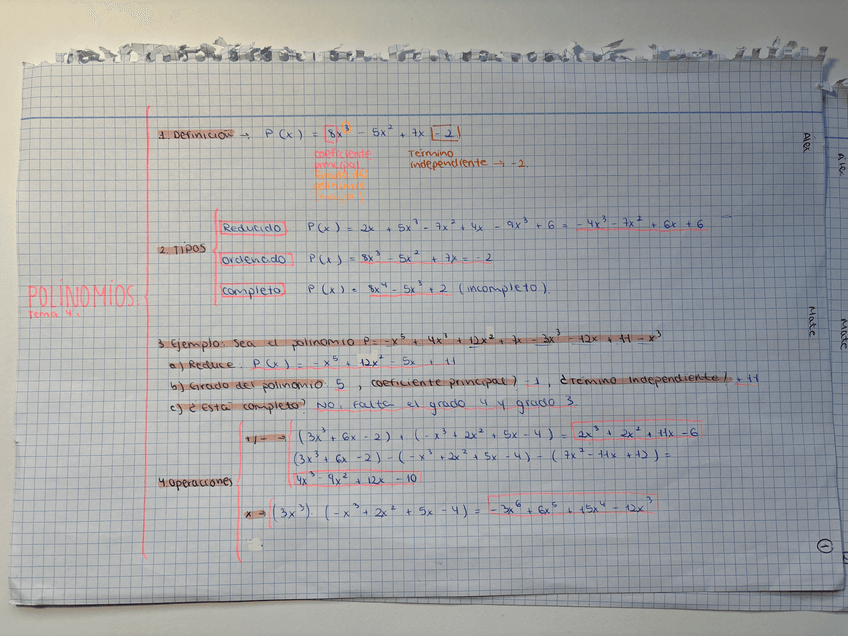 POLINOMIOS
Tema 4.
1. Definición → P(x) = 8x³ - 5x² + 7x - 2
coeficiente principal
Término independiente → -2.
2. TIPOS
Reducido P(x) = 2x + 5x³ - 7x² + 4x - 9x³ + 6 = -4x³ - 7x² + 6x + 6
ordenado P(x) = 8x³ - 5x² + 7x = -2
completo P(x) = 8x⁴ - 5x³ + 2 (incompleto).
3 Ejemplo: Sea el polinomio P = -x⁵ + 4x³ + 12x² + 7x - 3x³ - 12x + 11 - x³
a) Reduce: P(x) = -x⁵ + 12x² - 5x + 11
b) Grado del polinomio 5, coeficiente principal) -1, ¿Término independiente) + 11
c) ¿Está completo? No. Falta el grado 4 y grado 3.
4. operaciones
+/- → (3x³ + 6x - 2) + (-x³ + 2x² + 5x - 4) = 2x³ + 2x² + 11x - 6
(3x³ + 6x - 2) - (-x³ + 2x² + 5x - 4) - (7x² - 11x + 12) =
4x³ - 9x² + 12x - 10
x → (3x³) · (-x³ + 2x² + 5x - 4) = -3x⁶ + 6x⁵ + 15x⁴ - 12x³
Álex
Mate
Álex
Mate
1